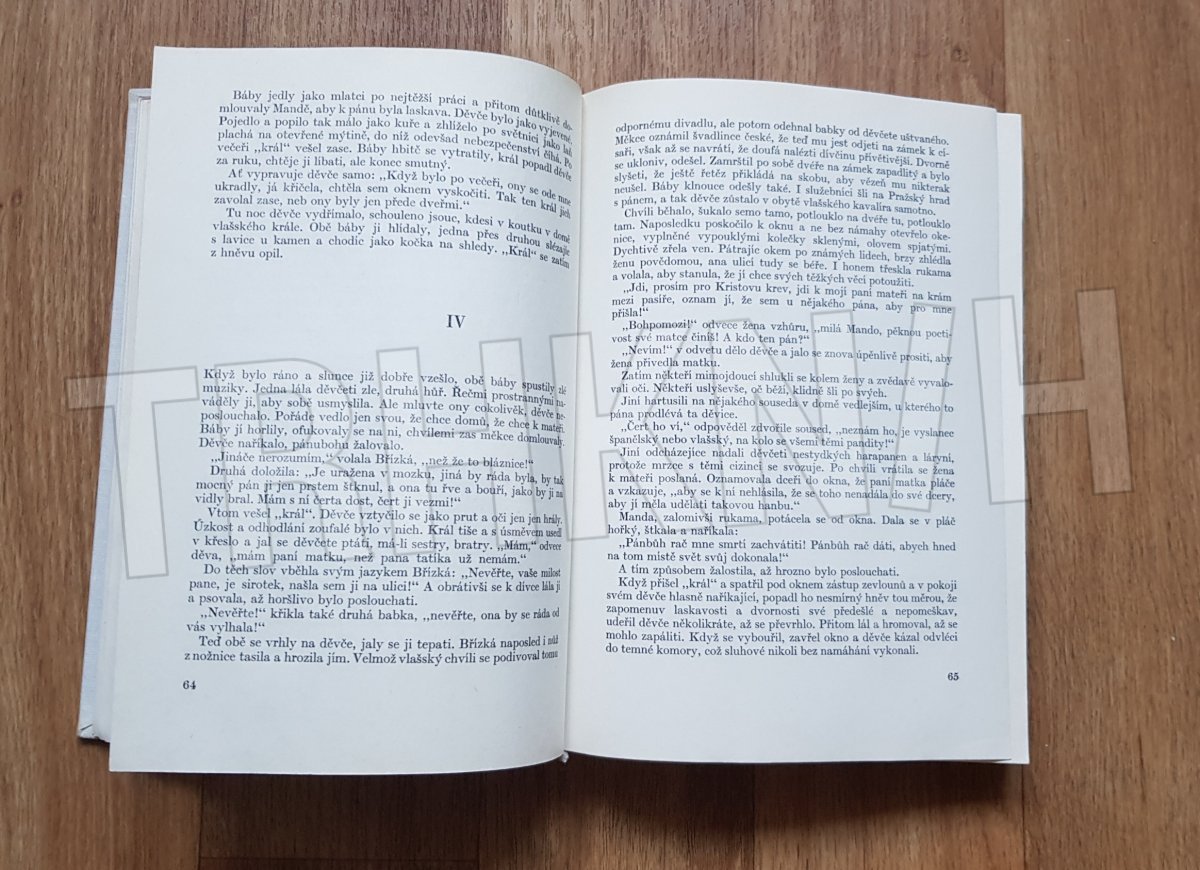 Báby jedly jako mlatci po nejtěžší práci a přitom důtklivě do-
mlouvaly Mandě, aby k pánu byla laskava. Děvče bylo jako vyjevené.
Pojedlo a popilo tak málo jako kuře a zhlíželo po světnici jako laň
plachá na otevřené mýtině, do níž odevšad nebezpečenství číhá. Po
večeři „král“ vešel zase. Báby hbitě se vytratily, král popadl děvče
za ruku, chtěje ji líbati, ale konec smutný.
Ať vypravuje děvče samo: „Když bylo po večeři, ony se ode mne
ukradly, já křičela, chtěla sem oknem vyskočiti. Tak ten král jich
zavolal zase, neb ony byly jen přede dveřmi.“
Tu noc děvče vydřímalo, schouleno jsouc, kdesi v koutku v domě
vlašského krále. Obě báby ji hlídaly, jedna přes druhou slézajíc
s lavice u kamen a chodíc jako kočka na shledy. „Král“ se zatím
z hněvu opil.
IV
Když bylo ráno a slunce již dobře vzešlo, obě báby spustily zlé
muziky. Jedna lála děvčeti zle, druhá hůř. Řečmi prostrannými na-
váděly ji, aby sobě usmyslila. Ale mluvte ony cokolivěk, děvče ne-
poslouchalo. Pořáde vedlo jen svou, že chce domů, že chce k mateři.
Báby jí horlily, ofukovaly se na ni, chvílemi zas měkce domlouvaly.
Děvče naříkalo, pánubohu žalovalo.
„Jináče nerozumím,“ volala Břízká, „než že to bláznice!“
Druhá doložila: „Je uražena v mozku, jiná by ráda byla, by tak
mocný pán ji jen prstem štknul, a ona tu řve a bouří, jako by ji na
vidly bral. Mám s ní čerta dost, čert ji vezmi!“
Vtom vešel „král“. Děvče vztyčilo se jako prut a oči jen jen hrály.
Úzkost a odhodlání zoufalé bylo v nich. Král tiše a s úsměvem usedl
v křeslo a jal se děvčete ptáti, má-li sestry, bratry. „Mám,“ odvece
děva, „mám paní matku, než pana tatíka už nemám.“
Do těch slov vběhla svým jazykem Břízká: „Nevěřte, vaše milost
pane, je sirotek, našla sem ji na ulici!“ A obrátivši se k dívce lála jí
a psovala, až horšlivo bylo poslouchati.
„Nevěřte!“ křikla také druhá babka, „nevěřte, ona by se ráda od
vás vylhala!“
Teď obě se vrhly na děvče, jaly se ji tepati. Břízká naposled i nůž
z nožnice tasila a hrozila jím. Velmož vlašský chvíli se podivoval tomu
64
odpornému divadlu, ale potom odehnal babky od děvčete uštvaného.
Měkce oznámil švadlince české, že teď mu jest odjeti na zámek k cí-
saři, však až se navrátí, že doufá nalézti dívčinu přívětivější. Dvorně
se ukloniv, odešel. Zamrštil po sobě dvéře na zámek zapadlitý a bylo
slyšeti, že ještě řetěz přikládá na skobu, aby vězeň mu nikterak
neušel. Báby klnouce odešly také. I služebníci šli na Pražský hrad
s pánem, a tak děvče zůstalo v obytě vlašského kavalíra samotno.
Chvíli běhalo, šukalo semo tamo, potlouklo na dvéře tu, potlouklo
tam. Naposledku poskočilo k oknu a ne bez námahy otevřelo oke-
nice, vyplněné vypouklými kolečky sklenými, olovem spjatými.
Dychtivě zřela ven. Pátrajíc okem po známých lidech, brzy zhlédla
ženu povědomou, ana ulicí tudy se béře. I honem třeskla rukama
a volala, aby stanula, že jí chce svých těžkých věcí potoužiti.
„Jdi, prosím pro Kristovu krev, jdi k mojí paní mateři na krám
mezi pasíře, oznam jí, že sem u nějakého pána, aby pro mne
přišla!“
„Bohpomozi!“ odvece žena vzhůru, „milá Mando, pěknou poeti-
vost své matce činíš! A kdo ten pán?“
„Nevím!“ v odvetu dělo děvče a jalo se znova úpěnlivě prositi, aby
žena přivedla matku.
Zatím někteří mimojdoucí shlukli se kolem ženy a zvědavě vyvalo-
vali oči. Někteří uslyševše, oč běží, klidně šli po svých.
Jiní hartusili na nějakého souseda v domě vedlejším, u kterého to
pána prodlévá ta děvice.
„Čert ho ví,“ odpověděl zdvořile soused, „neznám ho, je vyslanec
španělský nebo vlašský, na kolo se všemi těmi pandity!“
Jiní odcházejíce nadali děvčeti nestydkých harapan a láryní,
protože mrzce s těmi cizinci se svozuje. Po chvíli vrátila se žena
k mateři poslaná. Oznamovala dceři do okna, že paní matka pláče
a vzkazuje, „aby se k ní nehlásila, že se toho nenadála do své dcery,
aby jí měla udělati takovou hanbu.“
Manda, zalomivši rukama, potácela se od okna. Dala se v pláč
hořký, štkala a naříkala:
„Pánbůh rač mne smrtí zachvátiti! Pánbůh rač dáti, abych hned
na tom místě svět svůj dokonala!“
A tím způsobem žalostila, až hrozno bylo poslouchati.
Když přišel „král“ a spatřil pod oknem zástup zevlounů a v pokoji
svém děvče hlasně naříkající, popadl ho nesmírný hněv tou měrou, že
zapomenuv laskavosti a dvornosti své předešlé a nepomeškav,
udeřil děvče několikráte, až se převrhlo. Přitom lál a hromoval, až se
mohlo zapáliti. Když se vybouřil, zavřel okno a děvče kázal odvléci
do temné komory, což sluhové nikoli bez namáhání vykonali.
65
TRHKNIH